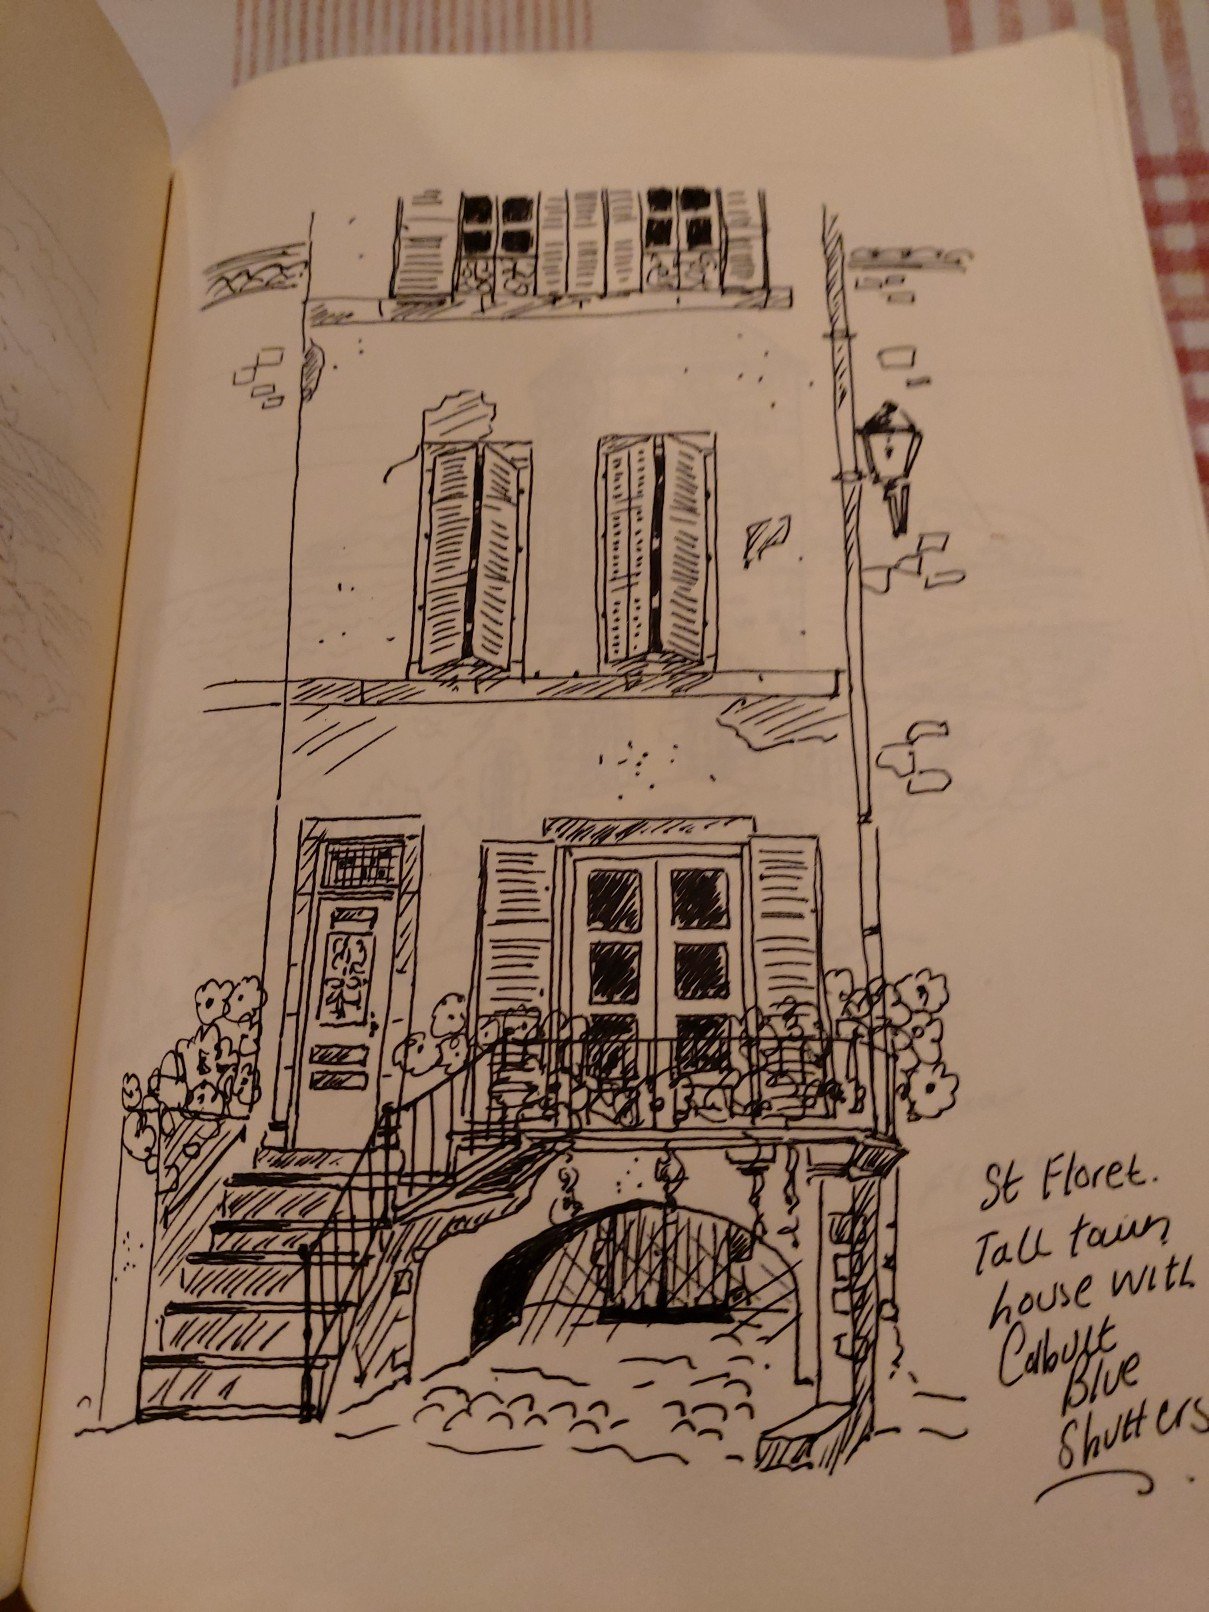 St Floret.
Tall town
house with
Colbult
Blue
Shutters